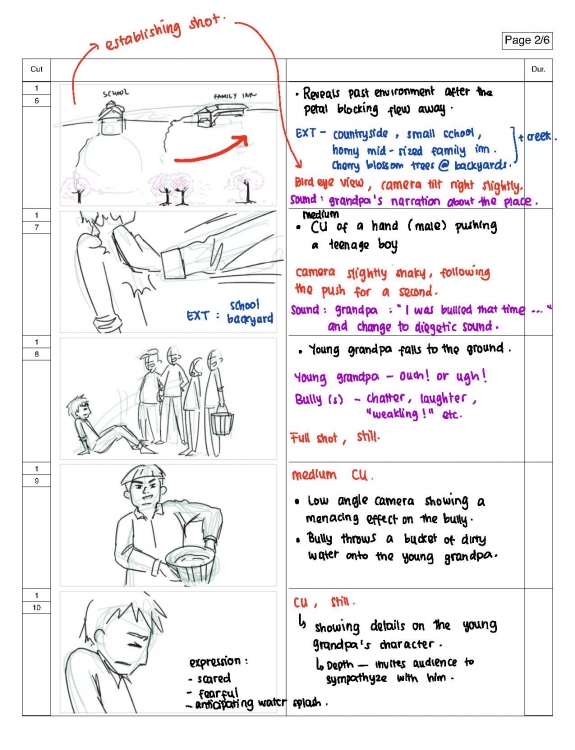 establishing shot.
Page 2/6
Cut
Dur.
1
6
SCHOOL
FAMILY INN
• Reveals past environment after the
petal blocking flew away.
EXT - countryside, small school,
homy mid-sized family inn.
cherry blossom trees @ backyards.
+ creek.
Bird eye view, camera tilt right slightly.
Sound: grandpa's narration about the place.
1
7
EXT: school
backyard
medium
• CU of a hand (male) pushing
a teenage boy
camera slightly shaky, following
the push for a second.
Sound: grandpa: "I was bullied that time ..."
and change to diegetic sound.
1
8
• Young grandpa falls to the ground.
Young grandpa - ouch! or ugh!
Bully (s) - chatter, laughter,
"weakling!" etc.
Full shot, still.
1
9
medium CU.
• Low angle camera showing a
menacing effect on the bully.
• Bully throws a bucket of dirty
water onto the young grandpa.
1
10
expression:
- scared
- fearful
- anticipating water splash.
CU, still.
↳ showing details on the young
grandpa's character.
↳ Depth — invites audience to
sympathyze with him.